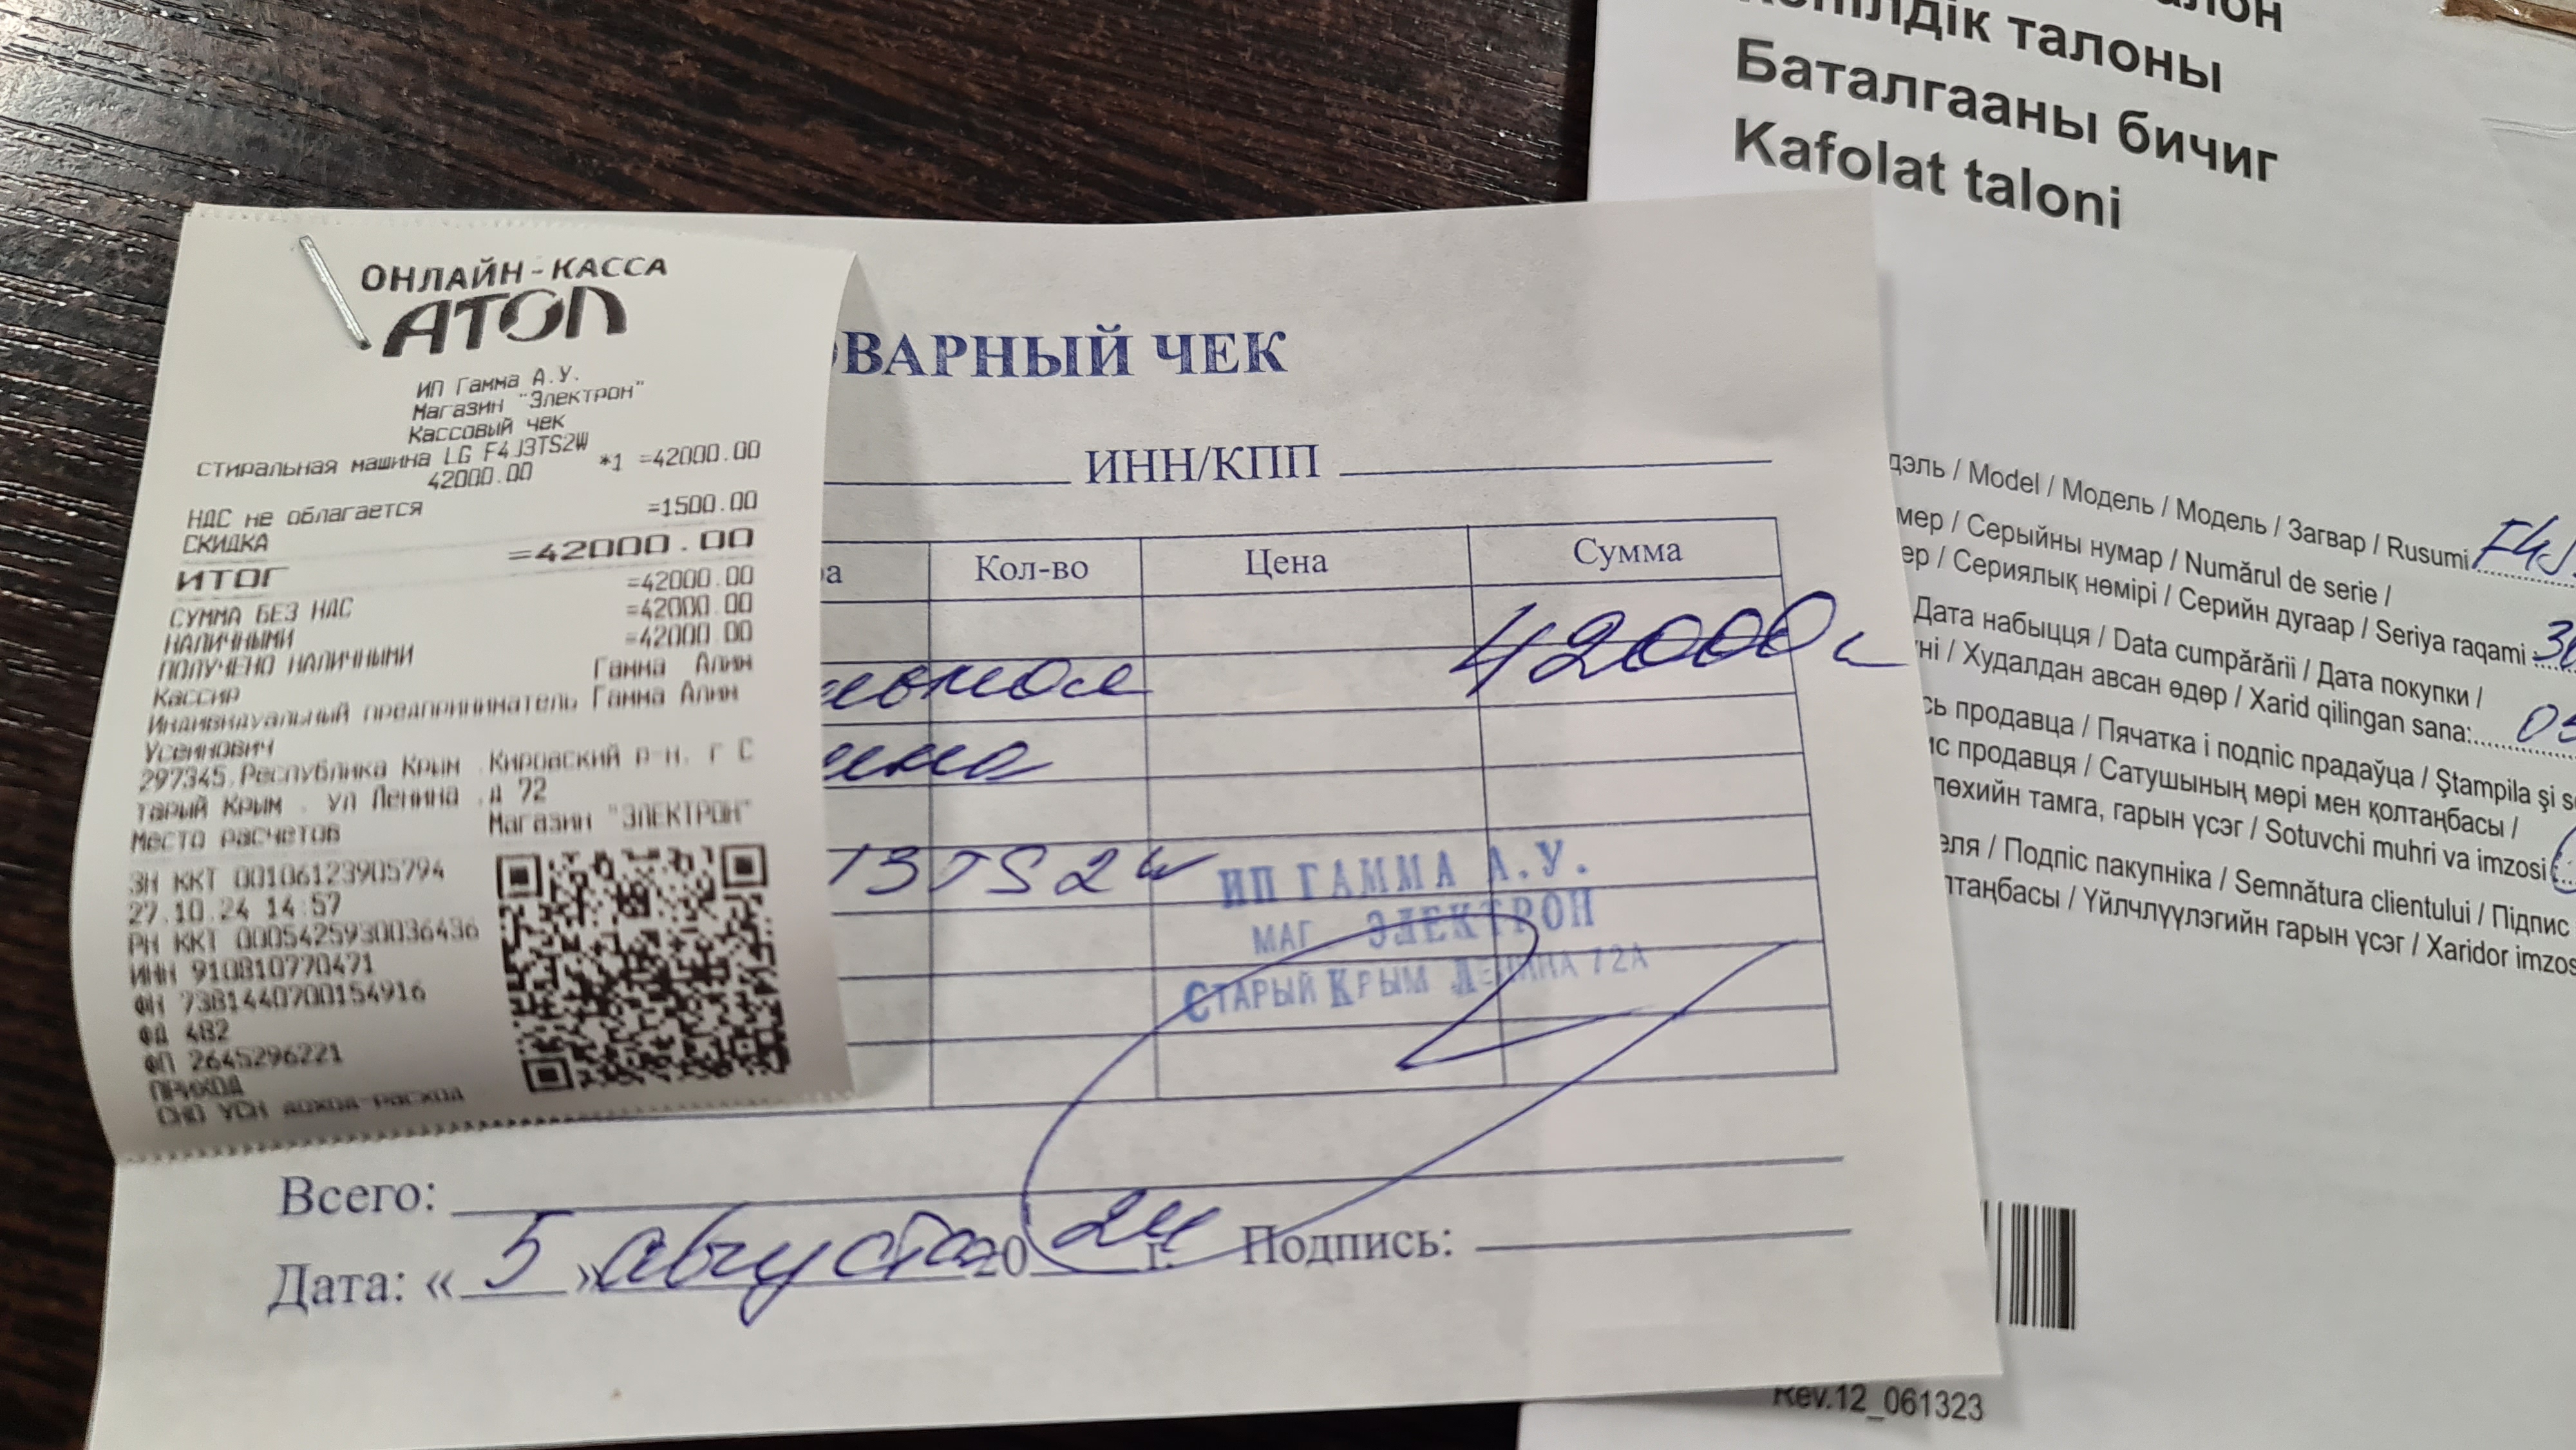 ОНЛАЙН-КАССА
АТОЛ
ИП Гамма А.У.
Магазин "Электрон"
Кассовый чек
стиральная машина LG F4J3TS2W
42000.00 *1 =42000.00
НДС не облагается
СКИДКА =1500.00
ИТОГ =42000.00
СУММА БЕЗ НДС =42000.00
НАЛИЧНЫМИ =42000.00
ПОЛУЧЕНО НАЛИЧНЫМИ =42000.00
Кассир Гамма Алим
Индивидуальный предприниматель Гамма Алим
Усеинович
297345,Республика Крым ,Кировский р-н, г С
тарый Крым , ул Ленина ,д 72
Место расчетов Магазин "ЭЛЕКТРОН"
ЗН ККТ 00106123905794
27.10.24 14:57
РН ККТ 0005425930036436
ИНН 910810770471
ФН 7381440700154916
ФД 482
ФП 2645296221
ПРИХОД
СНО УСН доход-расход
ОВАРНЫЙ ЧЕК
ИНН/КПП
ра Кол-во Цена Сумма
42000
13TS2W
ИП ГАММА А.У.
МАГ ЭЛЕКТРОН
СТАРЫЙ КРЫМ ЛЕНИНА 72А
Всего:
Дата: « 5 » августа 20 24 г. Подпись:
талон
Кепілдік талоны
Баталгааны бичиг
Kafolat taloni
дэль / Model / Модель / Модель / Загвар / Rusumi F4J
мер / Серыйны нумар / Numărul de serie /
ер / Сериялық нөмірі / Серийн дугаар / Seriya raqami
Дата набыцця / Data cumpărării / Дата покупки /
үні / Худалдан авсан өдөр / Xarid qilingan sana: 05
сь продавца / Пячатка і подпіс прадаўца / Ştampila şi s
ис продавця / Сатушының мөрі мен қолтаңбасы /
лөхийн тамга, гарын үсэг / Sotuvchi muhri va imzosi
еля / Подпіс пакупніка / Semnătura clientului / Підпис
лтаңбасы / Үйлчлүүлэгийн гарын үсэг / Xaridor imzos
Rev.12_061323